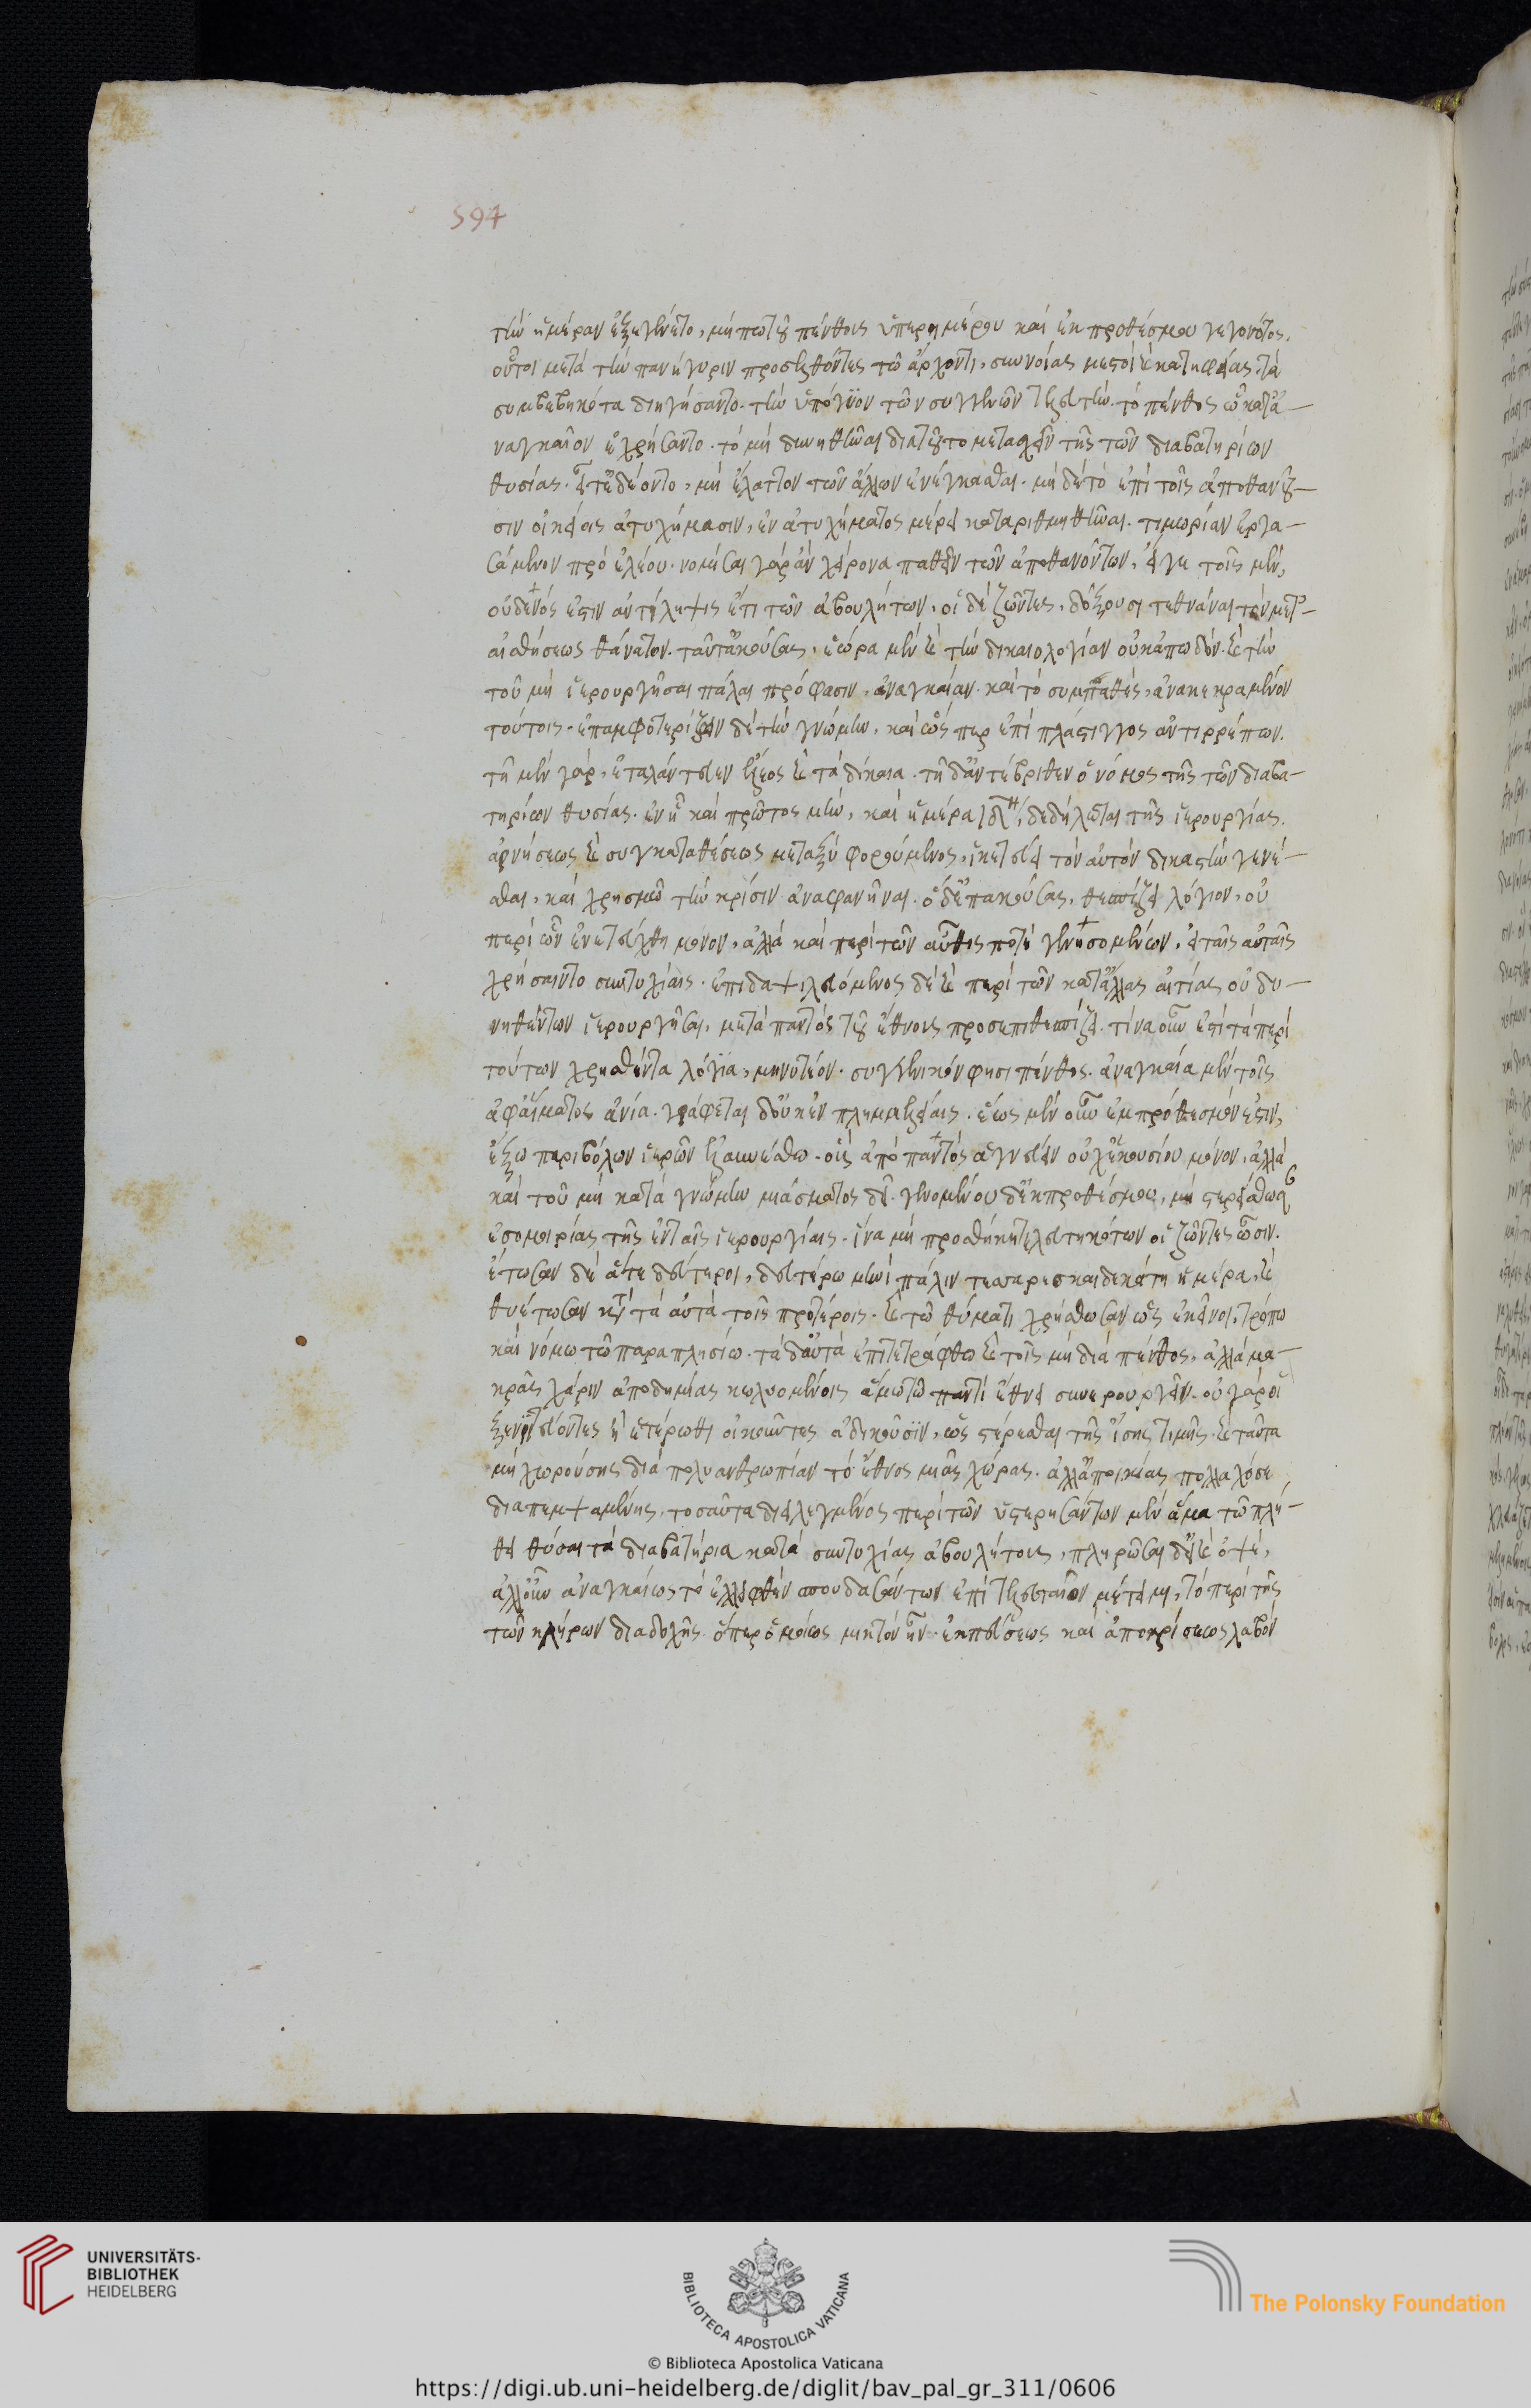 594
τὴν ἡμέραν ἐξεγένετο, μήπω τοῦ πένθους ὑπερημέρου καὶ ἐκ προθέσμου γεγονότος.
οὗτοι μετὰ τὴν πανήγυριν προσελθόντες τῶ ἄρχοντι, συννοίας μεστοὶ καὶ κατηφείας, τὰ
συμβεβηκότα διηγήσαντο. τὴν ὑπόγϋον τῶν συγγενῶν τελευτήν. τὸ πένθος ὧ κατὰ—
ναγκαῖον ἐχρήσαντο. τὸ μὴ δυνηθῆναι διατοῦτο μετασχεῖν τῆς τῶν διαβατηρίων
θυσίας. εἶτἐδέοντο, μὴ ἔλαττον τῶν ἄλλων ἐνέγκασθαι. μὴ δὲ τὸ ἐπὶ τοῖς ἀποθανοῦ—
σιν οἰκείοις ἀτυχήμασιν, ἐν ἀτυχήματος μέρει καταριθμηθῆναι. τιμωρίαν ἐργα—
σάμενον πρὸ ἐλέου. νομίσαι γὰρ ἂν χείρονα παθεῖν τῶν ἀποθανόντων, εἴγε τοῖς μὲν,
οὐδενός ἐστιν ἀντίληψις ἔτι τῶν ἀβουλήτων, οἱ δὲ ζῶντες, δόξουσι τεθνάναι τὸν μετ—
αἰσθήσεως θάνατον. ταῦτἀκούσας, ἑώρα μὲν καὶ τὴν δικαιολογίαν οὐκ ἀπωδόν. καὶ τὴν
τοῦ μὴ ἱερουργῆσαι πάλαι πρόφασιν, ἀναγκαίαν. καὶ τὸ συμπαθὲς, ἀνακεκραμένον
τούτοις. ἐπαμφοτερίζειν δὲ τὴν γνώμην, καὶ ὥς περ ἐπὶ πλάστιγγος ἀντιρρέπων.
τῆ μὲν γὰρ, ἐταλάντευεν ἔλεος καὶ τὰ δίκαια. τῆ δἀντέβριθεν ὁ νόμος τῆς τῶν διαβα—
τηρίων θυσίας. ἐν ᾧ καὶ πρῶτος μὴν, καὶ ἡμέρα ιδη, δεδήλωται τῆς ἱερουργίας.
ἀρνήσεως καὶ συγκαταθέσεως μεταξὺ φορούμενος, ἱκετεύει τὸν αὐτὸν δικαστὴν γενέ—
σθαι, καὶ χρησμῶ τὴν κρίσιν ἀναφανῆναι. ὁ δἐπακούσας, θεσπίζει λόγιον, οὐ
περὶ ὧν ἐνετεύχθη μόνον, ἀλλὰ καὶ περὶ τῶν αὖθις ποτὲ γενησομένων, εἰ ταῖς αὐταῖς
χρήσαιντο συντυχίαις. ἐπιδαψιλευόμενος δὲ καὶ περὶ τῶν κατἄλλας αἰτίας οὐ δυ—
νηθέντων ἱερουργῆσαι, μετὰ παντὸς τοῦ ἔθνους προσεπιθεσπίζει. τίνα οὖν ἐστὶ τὰ περὶ
τούτων χρησθέντα λόγϊα, μηνυτέον. συγγενικόν φησι πένθος. ἀναγκαία μὲν τοῖς
ἀφαἵματος ἀνία. γράφεται δοὐκ ἐν πλημμελείαις. ἕως μὲν οὖν ἐμπρόθεσμόν ἐστιν,
ἔξω περιβόλων ἱερῶν ἐλαυνέσθω. οὓς ἀπὸ παντὸς ἁγνεύειν οὐχ ἑκουσίου μόνον, ἀλλὰ
καὶ τοῦ μὴ κατὰ γνώμην μιάσματος δεῖ. γενομένου δἐκπροθέσμου, μὴ στερείσθωσαν
ἰσομοιρίας τῆς ἐν ταῖς ἱερουργίαις. ἵνα μὴ προσθήκη τελευτηκότων οἱ ζῶντες ὦσιν.
ἴτωσαν δὲ ἅτε δεύτεροι, δευτέρω μηνὶ πάλιν τεσσαρεσκαιδεκάτη ἡμέρα, καὶ
θυέτωσαν κατὰ τὰ αὐτὰ τοῖς προτέροις. καὶ τῶ θύματι χρήσθωσαν ὡς ἐκεῖνοι, τρόπω
καὶ νόμω τῶ παραπλησίω. τὰ δαὐτὰ ἐπιτετράφθω καὶ τοῖς μὴ διὰ πένθος, ἀλλὰ μα—
κρᾶς χάριν ἀποδημίας κωλυομένοις ἅμα τῶ παντὶ ἔθνει συνιερουργεῖν. οὐ γὰρ οἱ
ξενιτεύοντες ἢ ἑτέρωθι οἰκοῦντες ἀδικοῦσϊν, ὡς στέρεσθαι τῆς ἴσης τιμῆς. καὶ ταῦτα
μὴ χωρούσης διὰ πολυανθρωπίαν τὸ ἔθνος μιᾶς χώρας. ἀλλἀποικίας πολλαχόσε
διαπεμψαμένης. τοσαῦτα διειλεγμένος περὶ τῶν ὑστερησάντων μὲν ἅμα τῶ πλή—
θει θῦσαι τὰ διαβατήρια κατὰ συντυχίας ἀβουλήτους, πληρῶσαι δεἰ καὶ ὀψὲ,
ἀλλοὖν ἀναγκαίως τὸ ἐλλειφθὲν σπουδασάντων ἐπὶ τελευταῖον μέτειμι, τὸ περὶ τῆς
τῶν κλήρων διαδοχῆς. ὅπερ ὁμοίως μικτὸν ἦν. ἐκ πεύσεως καὶ ἀποκρίσεως λαβὸν
UNIVERSITÄTS-
BIBLIOTHEK
HEIDELBERG
BIBLIOTECA APOSTOLICA VATICANA
The Polonsky Foundation
© Biblioteca Apostolica Vaticana
https://digi.ub.uni-heidelberg.de/diglit/bav_pal_gr_311/0606